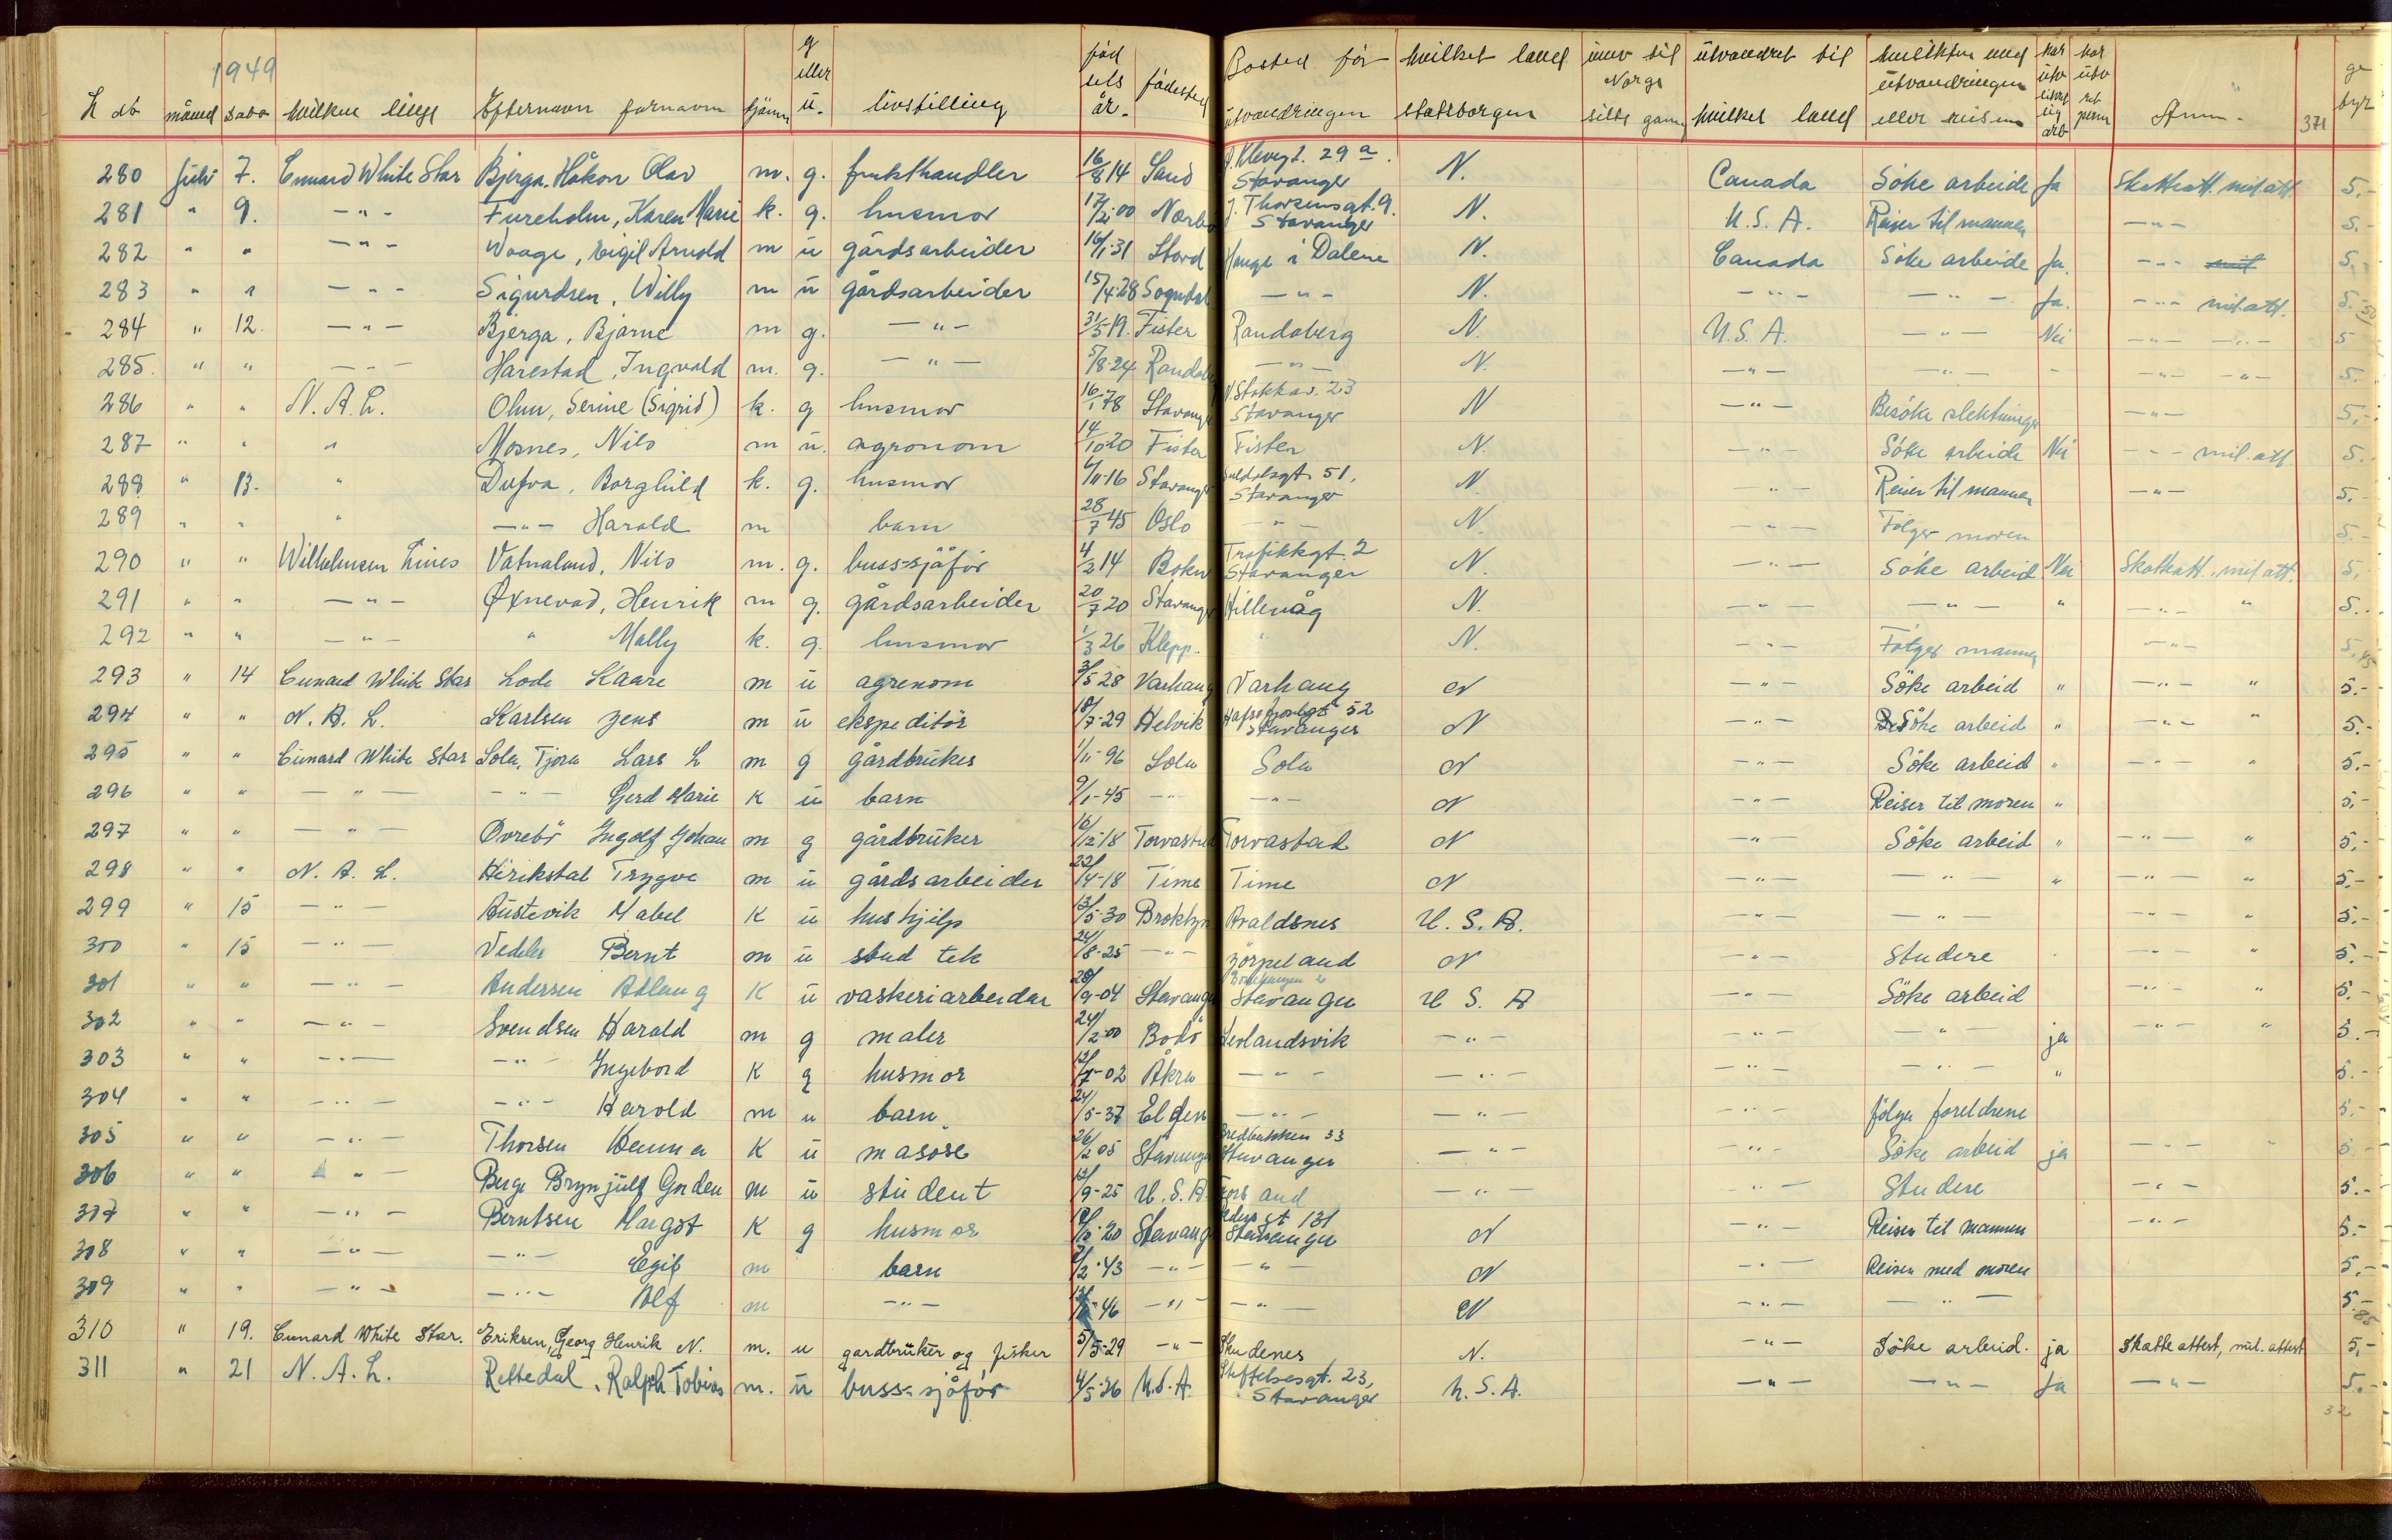 1949
L nr måned dato hvilken linje Efternavn fornavn kjönn g eller u. livstilling föd sels år. födested Bosted för utvandringen hvilket land statsborger innv til Norge siste gang utvandret til hvilket land hensikten med utvandringen eller reisen har utv Anm. 371 ge byr
280 Juli 7. Cunard White Star Bjerga, Håkon Olav m. g. frukthandler 16/8 14 Sand Klevegt. 29 a. Stavanger N. Canada Söke arbeide Ja Skatteatt. mil. att. 5.-
281 " 9. -"- Fureholm, Karen Marie k. g. husmor 17/2-00 Nærbö J. Thorsensgt. 9. Stavanger N. U.S.A. Reiser til mannen -"- 5.-
282 " " -"- Waage, Eigil Arnold m u gårdsarbeider 16/1-31 Stord Hauge i Dalene N. Canada Söke arbeide Ja. -"- 5.-
283 " " -"- Sigurdsen, Willy m u gårdsarbeider 15/4-28 Sogndal -"- N. -"- -"- Ja. -"- mil. att. 5.-
284 " 12. -"- Bjerga, Bjarne m g. -"- 31/5 19. Fister Randaberg N. U.S.A. -"- Nei -"- -"- 5
285. " " -"- Harestad, Ingvald m. g. -"- 5/8-24 Randaberg -"- N. -"- -"- - -"- -"- 5.
286 " " N.A.L. Olsen, Serine (Sigrid) k. g husmor 16/1-78 Stavanger V. Stokkav. 23 Stavanger N -"- Besöke slektninger -"- 5.-
287 " " " Mosnes, Nils m u. agronom 14/10 20 Fister Fister N. -"- Söke arbeide Nei -"- mil. att 5.-
288 " 13. " Dufva, Borghild k. g. husmor 6/11-16 Stavanger Suldalsgt. 51, Stavanger N. -"- Reiser til mannen -"- 5.-
289 " " " -"- Harald m barn 28/7 45 Oslo -"- N. -"- Fölger moren 5.-
290 " " Wilhelmsen Lines Vatnaland, Nils m. g. buss-sjåför 4/2 14 Bokn Trafikkgt. 2 Stavanger N. -"- Söke arbeid Nei Skatteatt. mil. att. 5.-
291 " " -"- Øxnevad, Henrik m g. gårdsarbeider 20/7 20 Stavanger Hillevåg N. -"- -"- " -"- " 5.-
292 " " -"- " Molly k. g. husmor 1/3 26 Klepp. " N. -"- Fölger mannen -"- 5.-
293 " 14 Cunard White Star Lode Kaare m u agronom 3/5 28 Varhaug Varhaug N -"- Söke arbeid " -"- " 5.-
294 " " N.A.L. Karlsen Jens m u ekspeditör 18/7-29 Helvik Hafrsfjordgt 52 Stavanger N -"- Söke arbeid " -"- " 5.-
295 " " Cunard White Star Sola, Tjora Lars L m g gårdbruker 1/11-96 Sola Sola N -"- Söke arbeid " -"- " 5.-
296 " " -"- -"- Gerd Marie K u barn 9/1-45 -"- -"- N -"- Reiser til moren " 5.-
297 " " -"- Övrebö Ingolf Johan m g gårdbruker 16/12-18 Torvastad Torvastad N -"- Söke arbeid " -"- " 5.-
298 " " N.A.L. Hirikstal Trygve m u gårdsarbeider 22/4-18 Time Time N -"- -"- " -"- " 5.-
299 " 15 -"- Austevik Mabel K u hushjelp 13/5-30 Broklyn Avaldsnes U.S.A. -"- -"- -"- " 5.-
300 " 15 -"- Vedeler Bernt m u stud tek 24/8-25 -"- Jörpeland N -"- Studere -"- " 5.-
301 " " -"- Andersen Aslaug K u vaskeriarbeider 28/9-04 Stavanger Stavanger U S. A -"- Söke arbeid -"- " 5.-
302 " " -"- Svendsen Harald m g maler 24/2-00 Bodö Sevlandsvik -"- -"- -"- ja -"- " 5.-
303 " " -"- -"- Ingebord K g husmor 13/7-02 Åkra -"- -"- -"- -"- " 5.-
304 " " -"- -"- Harold m u barn 24/5-37 -"- -"- -"- fölger foreldrene 5.-
305 " " -"- Thorsen Henma K u masöse 26/2 05 Stavanger Bredbakken 33 Stavanger -"- -"- Söke arbeid ja -"- " 5.-
306 " " -"- Berge Brynjulf Gorden m u student 13/9-25 U.S.A. Forsand -"- -"- Studere -"- 5.-
307 " " -"- Berntsen Margot K g husmor 18/12-20 Stavanger Pedersgt 131 Stavanger N -"- Reiser til mannen -"- 5.-
308 " " -"- -"- Egil m barn 7/2-43 -"- -"- N -"- Reiser med moren 5.-
309 " " -"- -"- Alf m -"- -46 -"- -"- N -"- -"- 5.-
310 " 19. Cunard White Star. Eriksen, Georg Henrik N. m. u gardbruker og fisker 5/5-29 -"- Skudenes N. -"- Söke arbeid. ja Skatteattest, mil. attest 5.-
311 " 21 N.A.L. Rettedal, Ralph Tobias m. u buss-sjåför 4/5-26 U.S.A. Stiftelsesgt. 23, Stavanger U.S.A. -"- -"- Ja -"- 5.-
32